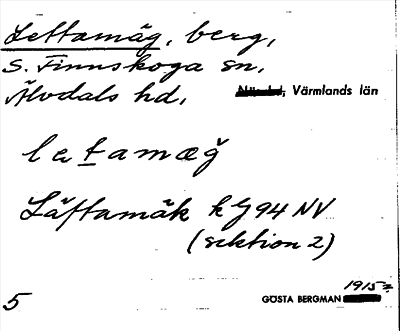 Lettamäg, berg,
S. Finnskoga sn,
Älvdals hd, Värmlands län
le tamæğ
Läftamäk kg 94 NV
(sektion 2)
1915
5 GÖSTA BERGMAN